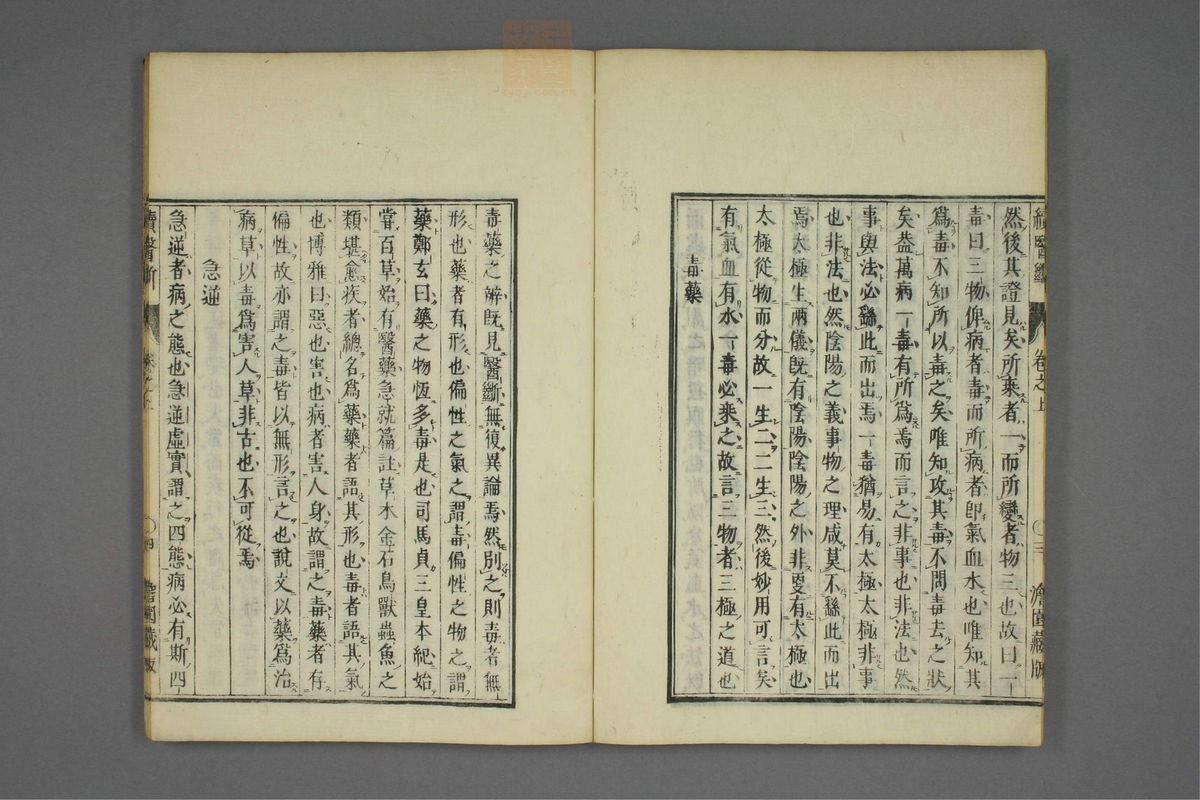 續醫斷 卷之上 〇三 澹園藏版
然後其證見矣所乘者一而所變者物三也故曰一
毒曰三物俾病者毒而所病者卽氣血水也唯知其
爲毒不知所以毒之矣唯知攻其毒不問毒去之狀
矣蓋萬病一毒有所爲焉而言之非事也非法也然
事與法必繇此而出焉一毒猶易有太極太極非事
也非法也然陰陽之義事物之理咸莫不繇此而出
焉太極生兩儀旣有陰陽陰陽之外非更有太極也
太極從物而分故一生二二生三然後妙用可言矣
有氣血有水一毒必乘之故言三物者三極之道也
毒藥
毒藥之辨旣見醫斷無復異論焉然別之則毒者無
形也藥者有形也偏性之氣之謂毒偏性之物之謂
藥鄭玄曰藥之物恆多毒是也司馬貞三皇本紀始
嘗百草始有醫藥急就篇註草木金石鳥獸蟲魚之
類堪愈疾者總名爲藥藥者語其形也毒者語其氣
也博雅曰惡也害也病者害人身故謂之毒藥者有
偏性故亦謂之毒皆以無形言之也說文以藥爲治
病草以毒爲害人草非古也不可從焉
急逆
急逆者病之態也急逆虛實謂之四態病必有斯四
續醫斷 卷之上 〇四 澹園藏版